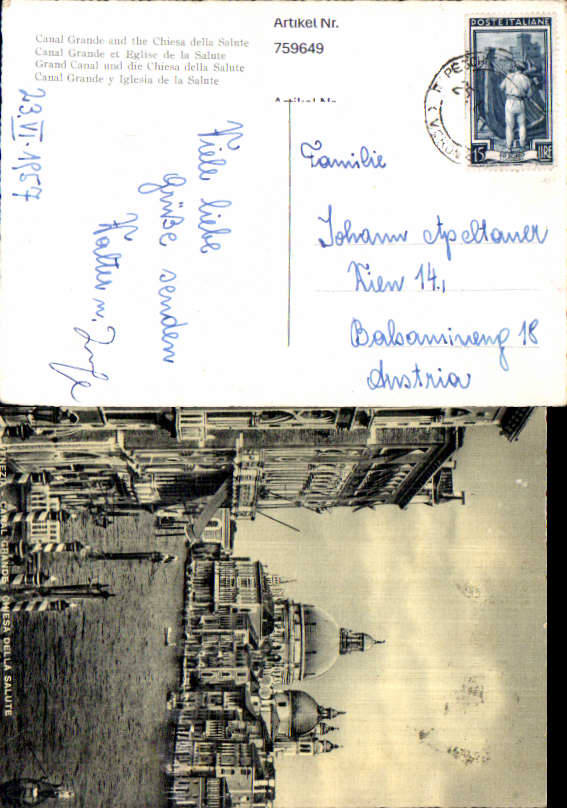 Canal Grande and the Chiesa della Salute
Canal Grande et Eglise de la Salute
Grand Canal und die Chiesa della Salute
Canal Grande y Iglesia de la Salute
Artikel Nr.
759649
POSTE ITALIANE
15 LIRE
23.VI.1957
Viele liebe
Grüße senden
Walter u.
Familie
Johann Apeltauer
Wien 14.,
Balsamineng 18
Austria
CANAL GRANDE CHIESA DELLA SALUTE